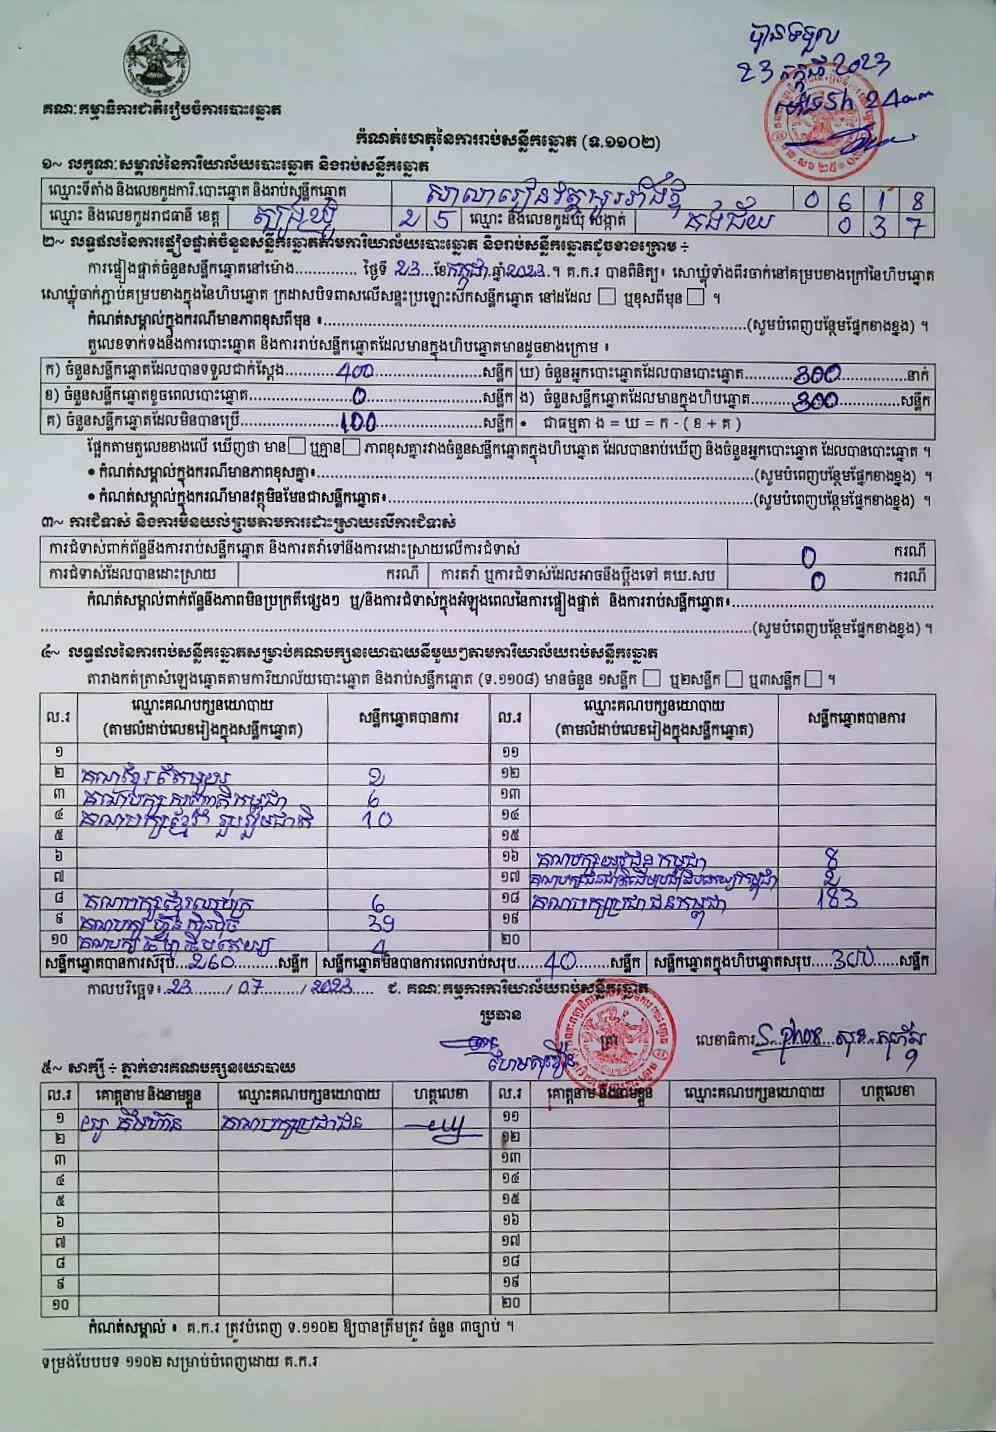 បានទទួល
23 កក្កដា 2023
ម៉ោង 5h 24am
គណៈកម្មាធិការជាតិរៀបចំការបោះឆ្នោត
កំណត់ហេតុនៃការរាប់សន្លឹកឆ្នោត (ទ.១១០២)
១~ លក្ខណៈសម្គាល់នៃការិយាល័យបោះឆ្នោត និងរាប់សន្លឹកឆ្នោត
ឈ្មោះទីតាំង និងលេខកូដការិ.បោះឆ្នោត និងរាប់សន្លឹកឆ្នោត សាលារៀនវត្ត 0 6 1 8
ឈ្មោះ និងលេខកូដរាជធានី ខេត្ត ត្បូងឃ្មុំ 2 5 ឈ្មោះ និងលេខកូដឃុំ សង្កាត់ គងជ័យ 0 3 7
២~ លទ្ធផលនៃការផ្ទៀងផ្ទាត់ចំនួនសន្លឹកឆ្នោតតាមការិយាល័យបោះឆ្នោត និងរាប់សន្លឹកឆ្នោតដូចខាងក្រោម ÷
ការផ្ទៀងផ្ទាត់ចំនួនសន្លឹកឆ្នោតនៅម៉ោង.............. ថ្ងៃទី 23 ខែ កក្កដា ឆ្នាំ 2023 ។ គ.ក.រ បានពិនិត្យ៖ សោឃ្លុំទាំងពីរចាក់នៅគម្របខាងក្រៅនៃហិបឆ្នោត
សោឃ្លុំចាក់ភ្ជាប់គម្របខាងក្នុងនៃហិបឆ្នោត ក្រដាសបិទពាសលើសន្ទះប្រឡោះស៊កសន្លឹកឆ្នោត នៅដដែល □ ឬខុសពីមុន □ ។
កំណត់សម្គាល់ក្នុងករណីមានភាពខុសពីមុន ៖..............(សូមបំពេញបន្ថែមផ្នែកខាងខ្នង) ។
តួលេខទាក់ទងនឹងការបោះឆ្នោត និងការរាប់សន្លឹកឆ្នោតដែលមានក្នុងហិបឆ្នោតមានដូចខាងក្រោម ៖
ក) ចំនួនសន្លឹកឆ្នោតដែលបានទទួលជាក់ស្តែង 400 សន្លឹក ឃ) ចំនួនអ្នកបោះឆ្នោតដែលបានបោះឆ្នោត 300 នាក់
ខ) ចំនួនសន្លឹកឆ្នោតខូចពេលបោះឆ្នោត 0 សន្លឹក ង) ចំនួនសន្លឹកឆ្នោតដែលមានក្នុងហិបឆ្នោត 300 សន្លឹក
គ) ចំនួនសន្លឹកឆ្នោតដែលមិនបានប្រើ 100 សន្លឹក • ជាធម្មតា ង = ឃ = ក - ( ខ + គ )
ផ្អែកតាមតួលេខខាងលើ ឃើញថា មាន □ ឬគ្មាន □ ភាពខុសគ្នារវាងចំនួនសន្លឹកឆ្នោតក្នុងហិបឆ្នោត ដែលបានរាប់ឃើញ និងចំនួនអ្នកបោះឆ្នោត ដែលបានបោះឆ្នោត ។
• កំណត់សម្គាល់ក្នុងករណីមានភាពខុសគ្នា៖..............(សូមបំពេញបន្ថែមផ្នែកខាងខ្នង) ។
• កំណត់សម្គាល់ក្នុងករណីមានវត្ថុមិនមែនជាសន្លឹកឆ្នោត៖..............(សូមបំពេញបន្ថែមផ្នែកខាងខ្នង) ។
៣~ ការជំទាស់ និងការមិនយល់ព្រមតាមការដោះស្រាយលើការជំទាស់
ការជំទាស់ពាក់ព័ន្ធនឹងការរាប់សន្លឹកឆ្នោត និងការតវ៉ាទៅនឹងការដោះស្រាយលើការជំទាស់ 0 ករណី
ការជំទាស់ដែលបានដោះស្រាយ ករណី ការតវ៉ា ឬការជំទាស់ដែលអាចនឹងប្តឹងទៅ គឃ.សប 0 ករណី
កំណត់សម្គាល់ពាក់ព័ន្ធនឹងភាពមិនប្រក្រតីផ្សេងៗ ឬ/និងការជំទាស់ក្នុងអំឡុងពេលនៃការផ្ទៀងផ្ទាត់ និងការរាប់សន្លឹកឆ្នោត៖..............
..............(សូមបំពេញបន្ថែមផ្នែកខាងខ្នង) ។
៤~ លទ្ធផលនៃការរាប់សន្លឹកឆ្នោតសម្រាប់គណបក្សនយោបាយនីមួយៗតាមការិយាល័យរាប់សន្លឹកឆ្នោត
តារាងកត់ត្រាសំឡេងឆ្នោតតាមការិយាល័យបោះឆ្នោត និងរាប់សន្លឹកឆ្នោត (ទ.១១០៨) មានចំនួន ១សន្លឹក □ ឬ២សន្លឹក □ ឬ៣សន្លឹក □ ។
ល.រ ឈ្មោះគណបក្សនយោបាយ សន្លឹកឆ្នោតបានការ ល.រ ឈ្មោះគណបក្សនយោបាយ សន្លឹកឆ្នោតបានការ
(តាមលំដាប់លេខរៀងក្នុងសន្លឹកឆ្នោត) (តាមលំដាប់លេខរៀងក្នុងសន្លឹកឆ្នោត)
១ ១១
២ គណខ្មែរតែមួយ 2 ១២
៣ គណបក្ស 6 ១៣
៤ គណបក្សខ្មែររួបរួមជាតិ 10 ១៤
៥ ១៥
៦ ១៦ គណបក្សយុវជនកម្ពុជា 8
៧ ១៧ 2
៨ គណបក្ស 6 ១៨ គណបក្សប្រជាជនកម្ពុជា 183
៩ គណបក្សហ្វ៊ុនស៊ិនប៉ិច 39 ១៩
១០ គណបក្សធម្មាធិបតេយ្យ 4 ២០
សន្លឹកឆ្នោតបានការសរុប 260 សន្លឹក សន្លឹកឆ្នោតមិនបានការពេលរាប់សរុប 40 សន្លឹក សន្លឹកឆ្នោតក្នុងហិបឆ្នោតសរុប 300 សន្លឹក
កាលបរិច្ឆេទ៖ 23 / 07 / 2023 ជ. គណៈកម្មការការិយាល័យរាប់សន្លឹកឆ្នោត
ប្រធាន
ត្រា លេខាធិការ
៥~ សាក្សី ÷ ភ្នាក់ងារគណបក្សនយោបាយ
ល.រ គោត្តនាម និងនាមខ្លួន ឈ្មោះគណបក្សនយោបាយ ហត្ថលេខា ល.រ គោត្តនាម និងនាមខ្លួន ឈ្មោះគណបក្សនយោបាយ ហត្ថលេខា
១ គណបក្សប្រជាជន ១១
២ ១២
៣ ១៣
៤ ១៤
៥ ១៥
៦ ១៦
៧ ១៧
៨ ១៨
៩ ១៩
១០ ២០
កំណត់សម្គាល់ ៖ គ.ក.រ ត្រូវបំពេញ ទ.១១០២ ឱ្យបានត្រឹមត្រូវ ចំនួន ៣ច្បាប់ ។
ទម្រង់បែបបទ ១១០២ សម្រាប់បំពេញដោយ គ.ក.រ